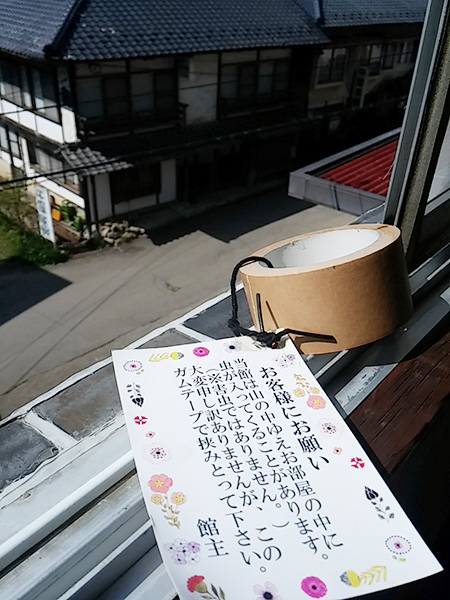 お客様にお願い
当館は山の中ゆえお部屋の中に
虫が入ってくることがあります。
（害虫ではありません。）
大変申し訳ありませんが、この
ガムテープで挟みとって下さい。
館主